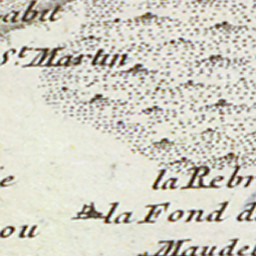 abit
St. Martin
e
la Rebr
la Fond d
ou
Maude